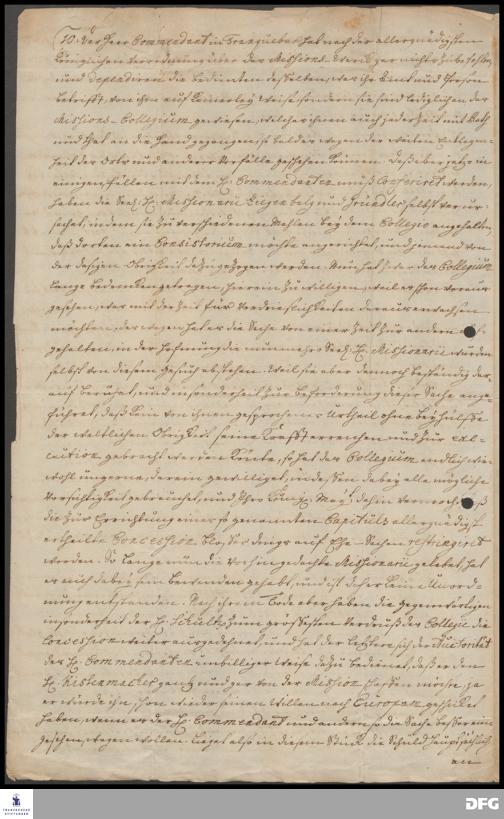 10. Der Herr Commendant in Tranquebar hat nach der allergnädigsten
Königlichen Verordnung über der Missions-Werck gar nichts zu befehlen,
und dependiren die bedienten desselben, was ihr Amt und Person
betrifft, von ihm auf keinerley Weise sondern sie sind lediglich an das
Missions-Collegium gewiesen, welches ihnen auch jederzeit mit Rath
und That an die Hand gegangen, so balde wegen der weiten Entlegen-
heit des Orts und anderer Vorfälle geschehen können. Daß aber jetzo in
einigen Fällen mit dem H. Commendanten muß Conferiret werden,
haben die Seel. H. Missionarii Ziegenbalg und Gründler selbst verur-
sachet, indem sie zu verschiedenen Mahlen bey dem Collegio angehalten,
daß dorten ein Consistorium möchte angerichtet, und jemand von
der dasigen Obrigkeit dazu gezogen werden. Nun hat zwar das Collegium
lange bedencken getragen, hierein zu willigen, weil es schon voraus
gesehen, was mit der Zeit für Verdrieslichkeiten daraus erwachsen
möchten, deswegen hat es die Sache von einer Zeit zur andern
gehalten, in der Hofnung die nunmehro Seel. H. Missionarii würden
selbst von diesem Gesuch abstehen. Weil sie aber dennoch beständig dar-
auf beruhet, und insonderheit zur Beförderung dieser Sache ange-
führet, daß kein von ihnen gesprochenes Urtheil ohne beyhülffe
der weltlichen Obrigkeit seine Krafft erreichen und zur exe-
cution gebracht werden könte, so hat das Collegium endlich wie-
wohl ungerne, darein gewilliget, indessen dabey alle mögliche
Vorsichtigkeit gebrauchet, und Ihro Königl. Mayt. dahin
die zur Errichtung eines so genannten Capituls allergnädigst
ertheilte Concession blos dings auf Ehe-Sachen restringiret
worden. So lange nun die Vorhin gedachte Missionarii gelebet, hat
es auch dabey sein bewenden gehabt, und ist daher keine Unord-
nung entstanden. Nach ihrem Tode aber haben die Gegenwärtigen
insonderheit der H. Schultz zum grössesten Verdruß des Collegii die
Concession weiter ausgedehnet, und hat der letztere sich der Auctorität
des H. Commendanten unbilliger Weise dazu bedienet, daß er den
H. Kistenmacher gantz und gar von der Mission stossen möchte, ja
er würde ihn schon wieder seinen Willen nach Europam geschicket
haben, wenn es der H. Commendant und andere so die Sache besser ein-
gesehen, wagen wollen. Lieget also in diesem Stück die Schuld hauptsächlich
an
FRANCKESCHE STIFTUNGEN
DFG